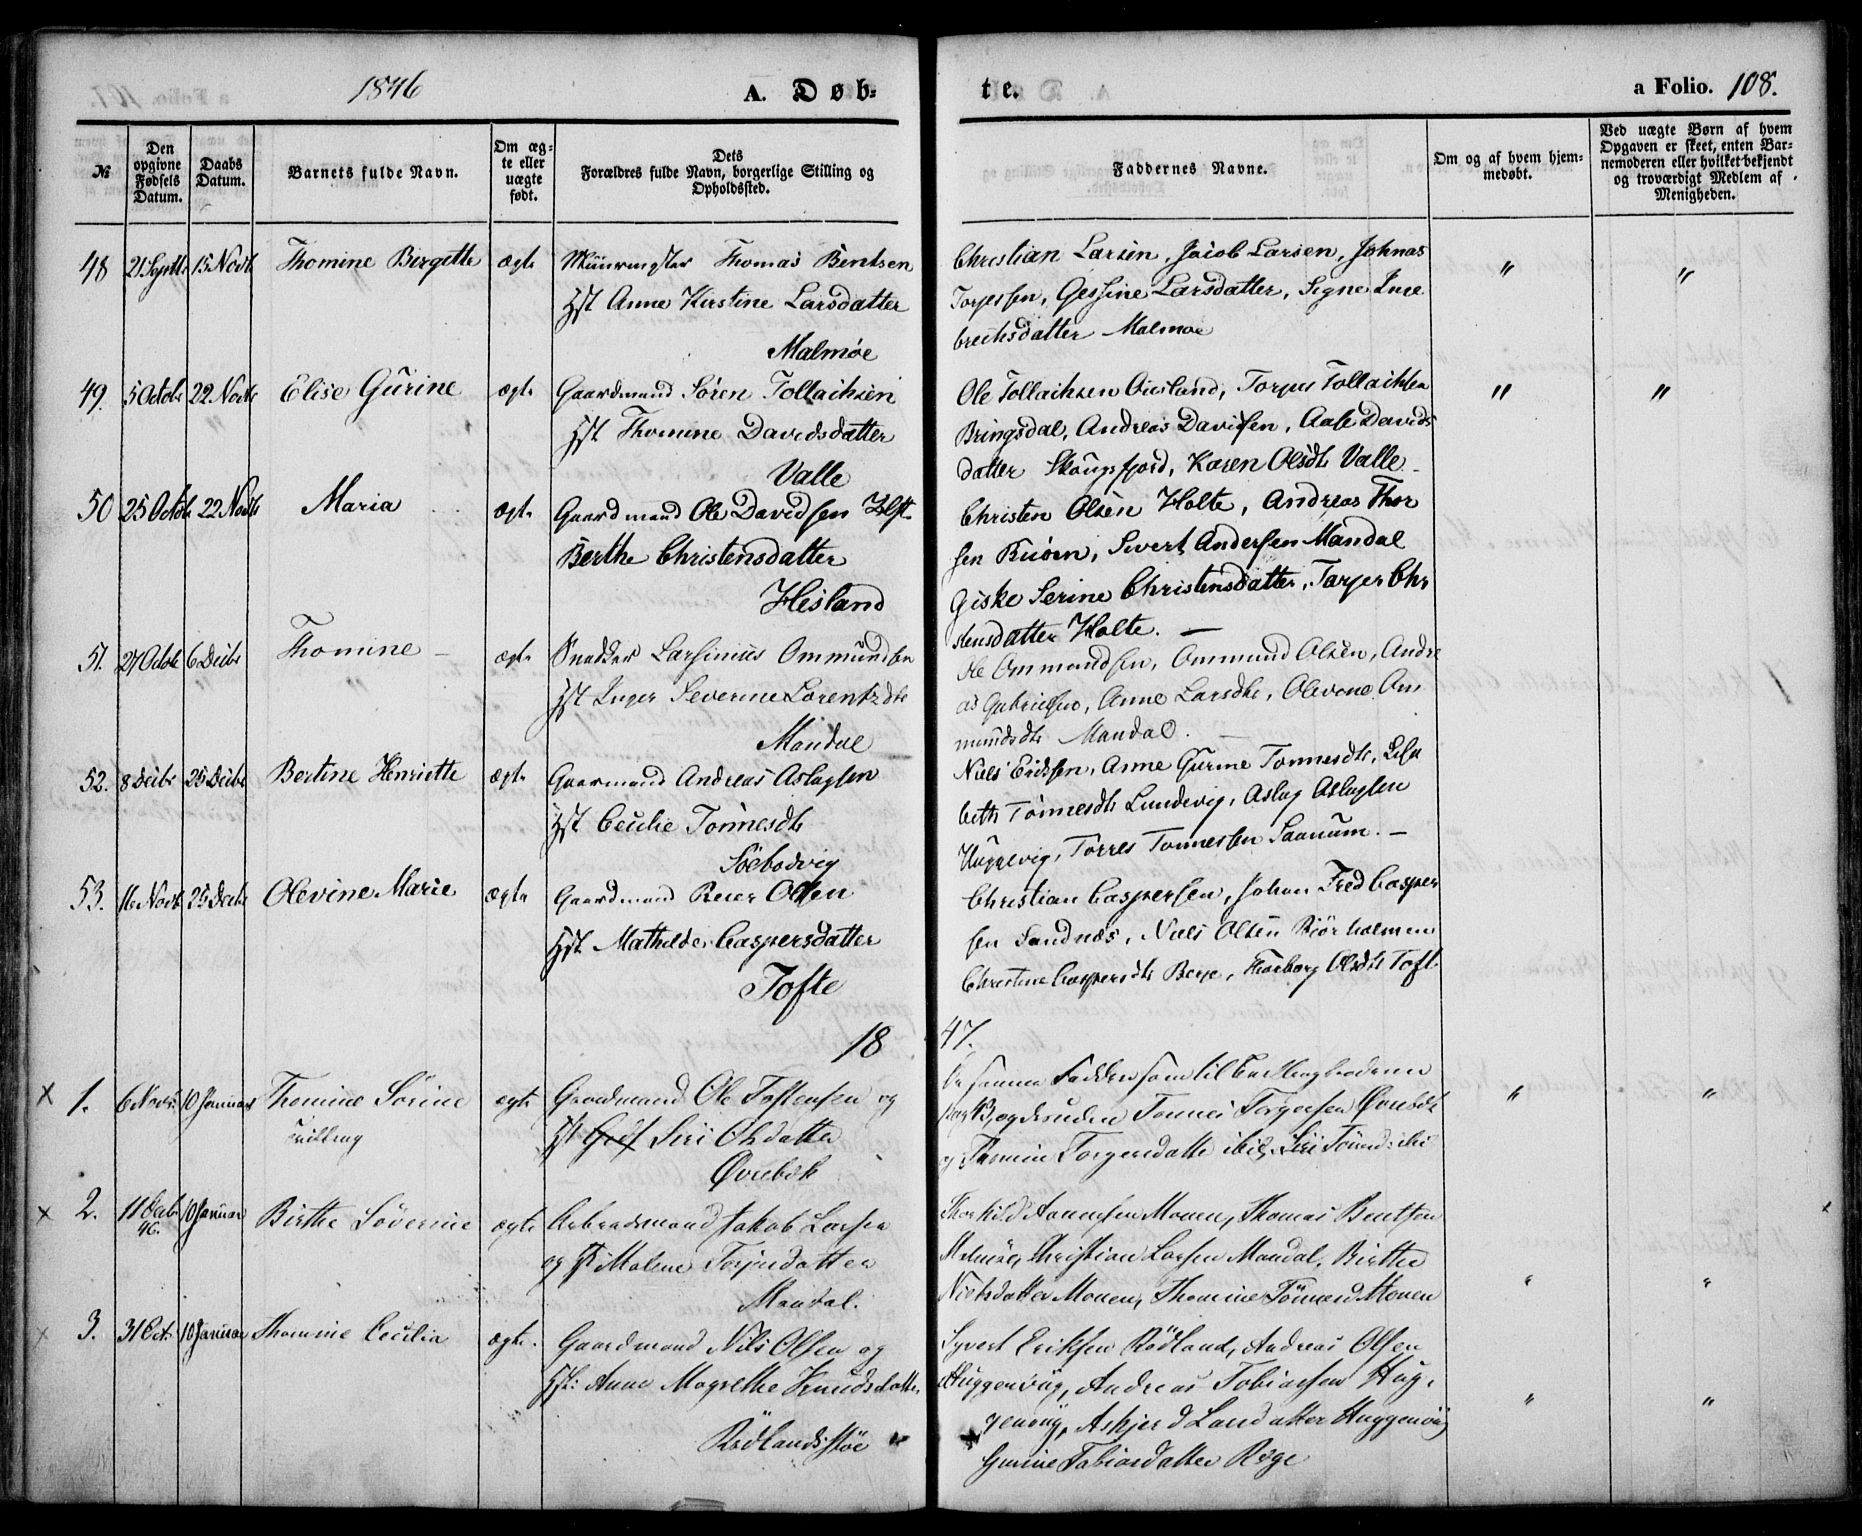 1846
A. Døb-
te.
a Folio. 108.
№
Den opgivne Fødsels Datum.
Daabs Datum.
Barnets fulde Navn.
Om æg-
te eller
uægte
født.
Dets
Forældres fulde Navn, borgerlige Stilling og
Opholdssted.
Faddernes Navne.
Om og af hvem hjem-
medøbt.
Ved uægte Børn af hvem
Opgaven er skeet, enten Bar-
nemoderen eller hvilket bekjendt
og troværdigt Medlem af
Menigheden.
48 21 Septbr 15 Novbr Thomine Birgitte ægte Thomas Bentsen
Hst Anne Kirstine Larsdatter
Malmøe
Christian Larsen, Jacob Larsen, Johnas
Torjessen, Gessine Larsdatter, Signe Inge
brechtsdatter Malmøe
" "
49. 5 Octobr 22 Novbr Elise Gurine ægte Gaardmand Søren Tollachsen
Hst Thomine Davidsdatter
Valle
Ole Tollachsen Ousland, Torjus Tollachsen
Bringsdal, Andreas Davidsen, Aase Davids
datter Skougsfjord, Karen Olsdtr Valle
" "
50 25 Octobr 22 Novbr Maria ægte Gaardmand Ole Davidsen Hst
Berthe Christensdatter
Hesland
Christen Olsen Holte, Andreas Thor
sen Buøen, Sivert Andersen Mandal
Giske Serine Christensdatter, Torjer Chr
stensdatter Holte.
51. 27 Octobr 6 Decbr Thomine ægte Snedker Larsinius Ommundsen
Hst Inger Severine Lorentzdtr
Mandal
Ole Ommundsen, Ommund Olsen, Andre
as Gabrielsen, Anne Larsdtr, Olevine Om
mundsdtr Mandal.
52. 8 Decbr 25 Decbr Bertine Henriette ægte Gaardmand Andreas Aslagsen
Hst Cecilie Tönnesdtr
Søebodvig
Niels Eriksen, Anne Gurine Tønnesdtr, Lisa
beth Tönnesdtr Lundevig, Aslag Aslagsen
Huggevig, Torres Tønnessen Saanum.
53. 16 Novbr 25 Decbr Olevine Marie ægte Gaardmand Reier Olsen
Hst. Mathilde Caspersdatter
Tofte
Christian Caspersen, Johan Fred Casper
sen Sandnæs, Niels Olsen Biörholmen
Christine Caspersdtr Berge, Thorborg Olsdtr Tofte
18 47.
× 1. 6 Novbr 10 Januar Thomine Sörine
Tvilling
ægte Gaardmand Ole Tostensen og
Hst Siri Olsdatter
Øvrebøk
De samme Faddere som til
og B, og desuden Tønnes Torgersen Øvrebøk
og Tomine Torgersdatter ibid, Siri
" "
× 2. 11 Decbr
46. 10 Januar Birthe Söverine ægte Arbeidsmand Jakob Larsen
og Hst Malene Torjusdatter
Mandal.
Thorkild Aanensen Monen, Thomas Bentsen
Malmöe, Christian Larsen Mandal, Birthe
Nielsdatter Monen, Thomine Tönnesd Monen
" "
× 3. 31 Oct 10 Januar Thomine Cecilia ægte. Gaardmand Nils Olsen og
Hst: Anne Magrethe Knudsdatter
Rödlandsstöe
Syvert Eriksen Rödland, Andreas Olsen
Huggenvig, Andreas Tobiassen Hug-
genvig, Askjerd Larsdatter Huggenvig
Gurine Tobiasdatter Røge
" "